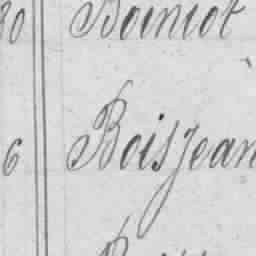 30 Boiniot
6 Boisjean